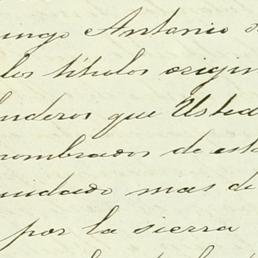 ungo Antonio
los títulos origin
linderos que Usted
nombrados de est
uidado mas de
por la sierra